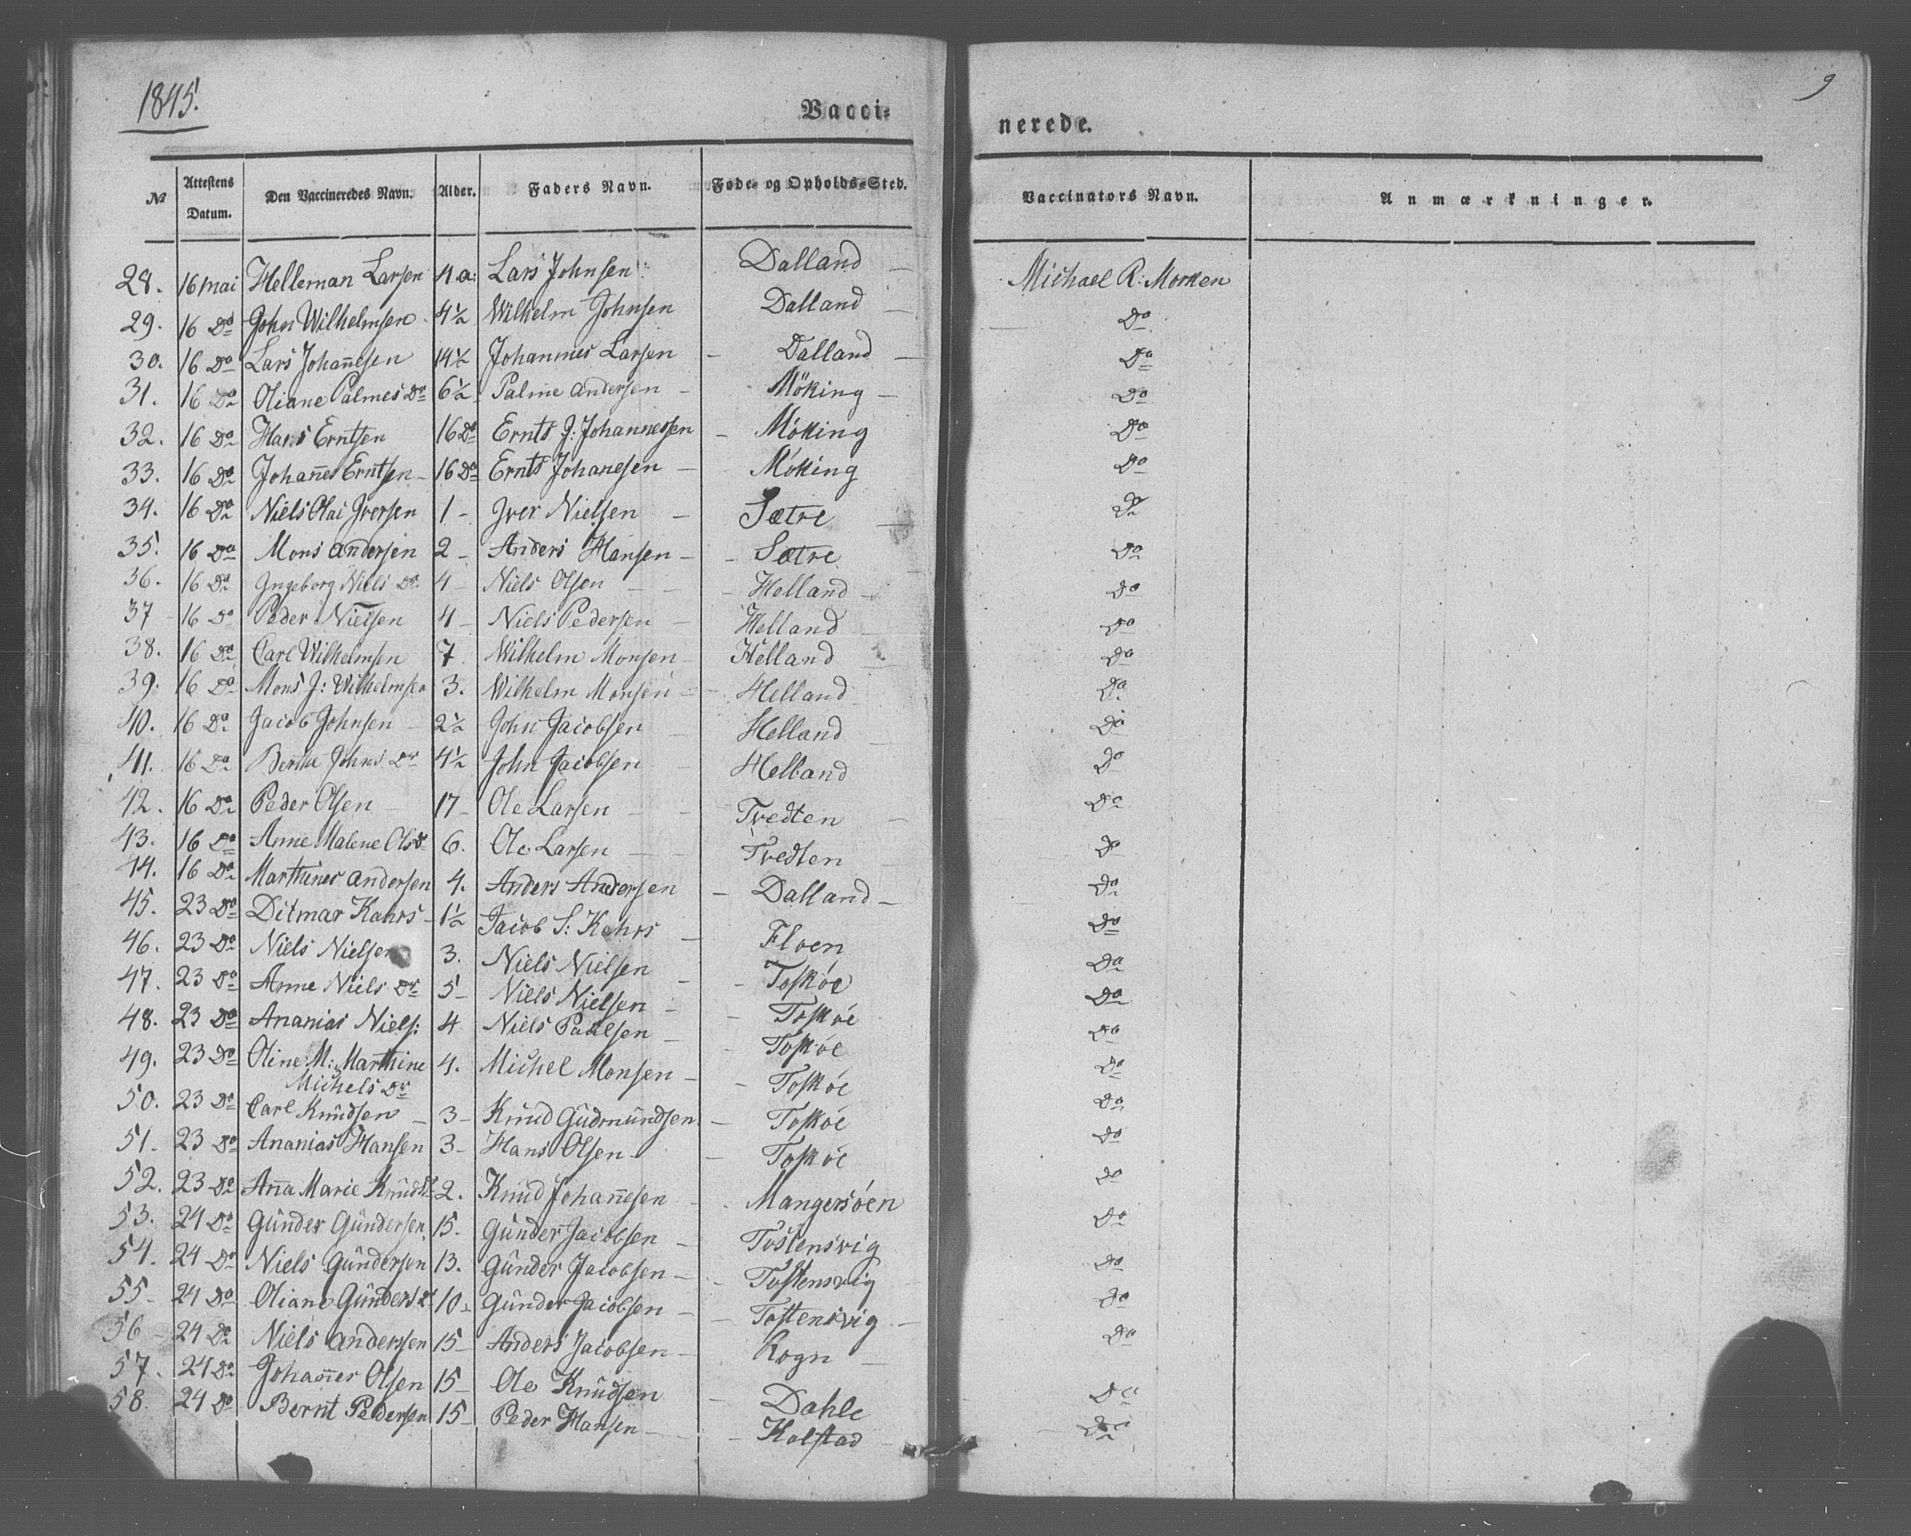 1845. 9
Vacci- nerede.
№ Attestens Datum. Den Vaccineredes Navn. Alder. Faders Navn. Føde- og Opholds-Sted. Vaccinators Navn. Anmærkninger.
28. 16 mai Helleman Larsen 4 a: Lars Johnsen Dalland Michael R: Morken
29. 16 Do John Wilhelmsen 4½ Wilhelm Johnsen Dalland Do
30. 16 Do Lars Johan̄esen 14½ Johannes Larsen Dalland Do
31. 16 Do Oliane Palmes Dr 6½ Palme Andersen Möking Do
32. 16 Do Hans Erntsen 16 Do Ernts J: Johannessen Möking Do
33. 16 Do Johan̄es Erntsen 16 Do Ernts Johanesen Möking Do
34. 16 Do Niels Olai Iversen 1 Iver Nielsen Sætre Do
35. 16 Do Mons Andersen 2 Anders Hansen Sætre Do
36. 16 Do Ingeborg Niels Dr. 4 Niels Olsen Helland Do
37 16 Do Peder Nielsen 4 Niels Pedersen Helland Do
38. 16 Do Carl Wilhelmsen 7 Wilhelm Monsen Helland Do
39. 16 Do Mons J: Wilhelmsen 3. Wilhelm Monsen Helland Do
40. 16 Do Jacob Johnsen 2½ John Jacobsen Helland Do
41. 16 Do Bertha Johns Dr 4½ John Jacobsen Helland Do
42. 16 Do Peder Olsen 17 Ole Larsen Tvedten Do
43. 16 Do Anne Malene Ols Dr 6. Ole Larsen Tvedten Do
44. 16 Do Marthines Andersen 4. Anders Andersen Dalland Do
45. 23 Do Ditmar Kahrs 1½ Jacob S: Kahrs Floen Do
46. 23 Do Niels Nielsen 3. Niels Nielsen Toskøe Do
47. 23 Do Anne Niels Dr 5 Niels Nielsen Toskøe Do
48. 23 Do Ananias Niels: 4 Niels Paulsen Toskøe Do
49. 23 Do Oline M: Marthine 4. Michel Monsen Toskøe Do
Michels Dr
50. 23 Do Carl Knudsen 3 Knud Gudmundsen Toskøe Do
51. 23 Do Ananias Hansen 3 Hans Olsen Toskøe Do
52. 23 Do An̄a Marie Knuds 2. Knud Johan̄esen Mangersøen Do
53. 24 Do Gunder Gundersen 15. Gunder Jacobsen Tostensvig Do
54. 24 Do Niels Gundersen 13. Gunder Jacobsen Tostensvig Do
55 24 Do Oliane Gunders Dr 10 Gunder Jacobsen Tostensvig Do
56 24 Do Niels Andersen 15 Anders Jacobsen Rogn Do
57. 24 Do Johan̄es Olsen 15 Ole Knudsen Dahle Do
58. 24 Do Bernt Pedersen 15 Peder Hansen Kolstad Do